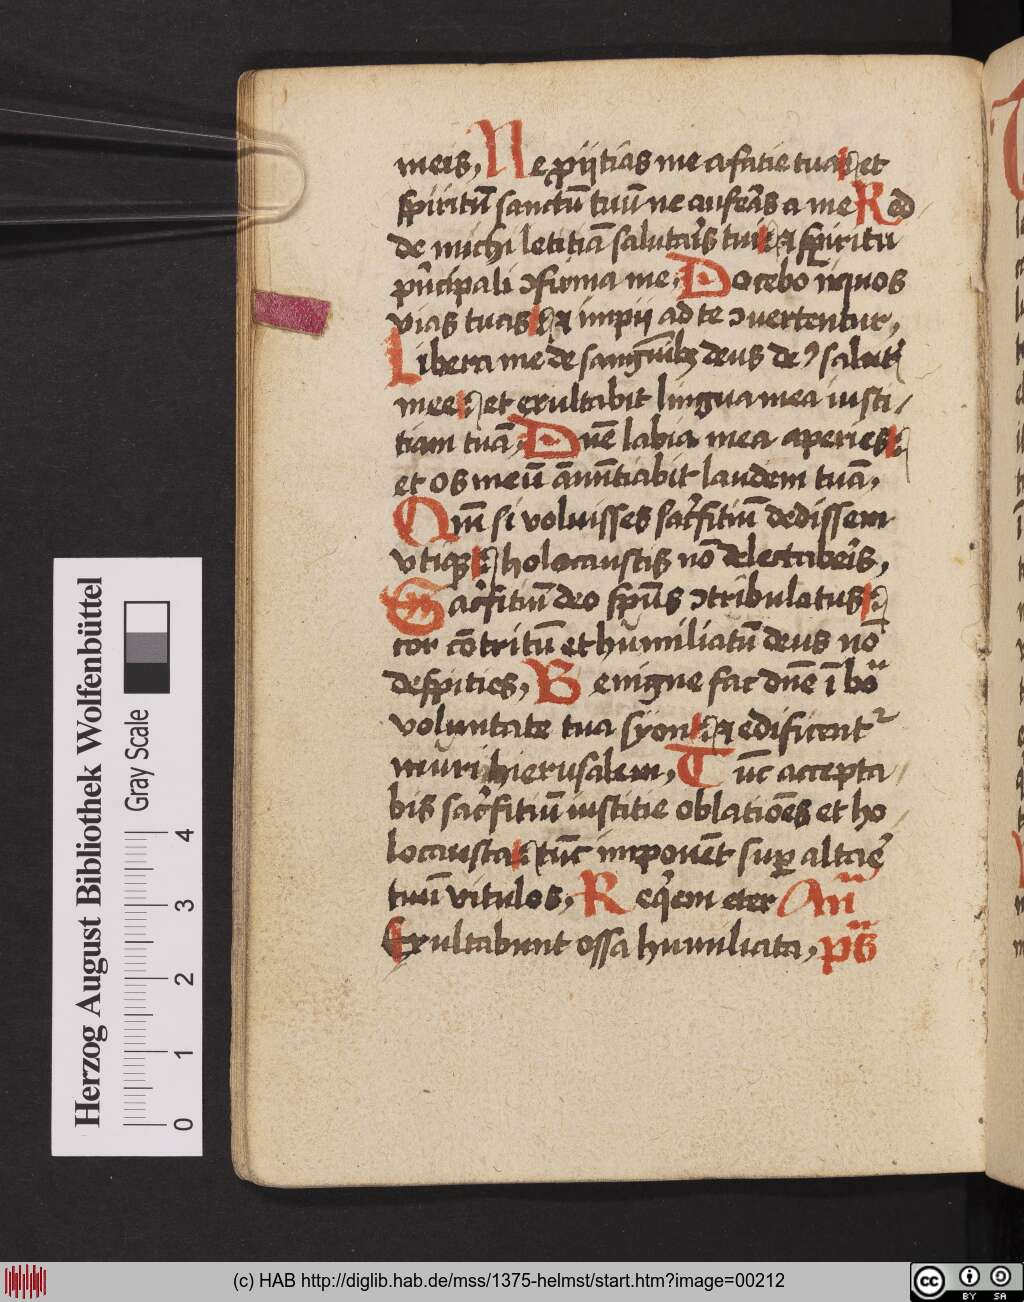 meis, Ne p̱ijtias me a fatie tua et
spiritū sanctū tuū ne aufeꝛ̄s a me Red
de michi letitiā salutar̄s tui ⁊ spiritu
p̄ncipali ꝯfirma me, Docebo iniquos
vias tuas ⁊ impij ad te ꝯuertentur,
Libera me de sanguīibꝫ deus deꝰ salut̄
mee et exultabit lingua mea iusti /
tiam tuā, Dn̄e labia mea aperies
et os meū ān̄untiabit laudem tuā,
Qm̄ si voluisses sac̄fitiū dedissem
vtiqꝫ holocaustis nō delectabeꝛ̄s,
Sac̄fitiū deo sp̄us ꝯtribulatus
cor cōtritū et humiliatū deus nō
despities, Benigne fac dn̄e ī bo̅
voluntate tua syon ⁊ edificent᷑
muri hierusalem, Tūc accepta /
bis sac̄fitiū iustitie oblatiōes et ho /
locausta tūc imponēt suꝑ altaē
tuū vitulos, Req̄em eter An̄
Exultabunt ossa humiliata, ps̄
Herzog August Bibliothek Wolfenbüttel
Gray Scale
0 1 2 3 4
(c) HAB http://diglib.hab.de/mss/1375-helmst/start.htm?image=00212
cc BY SA